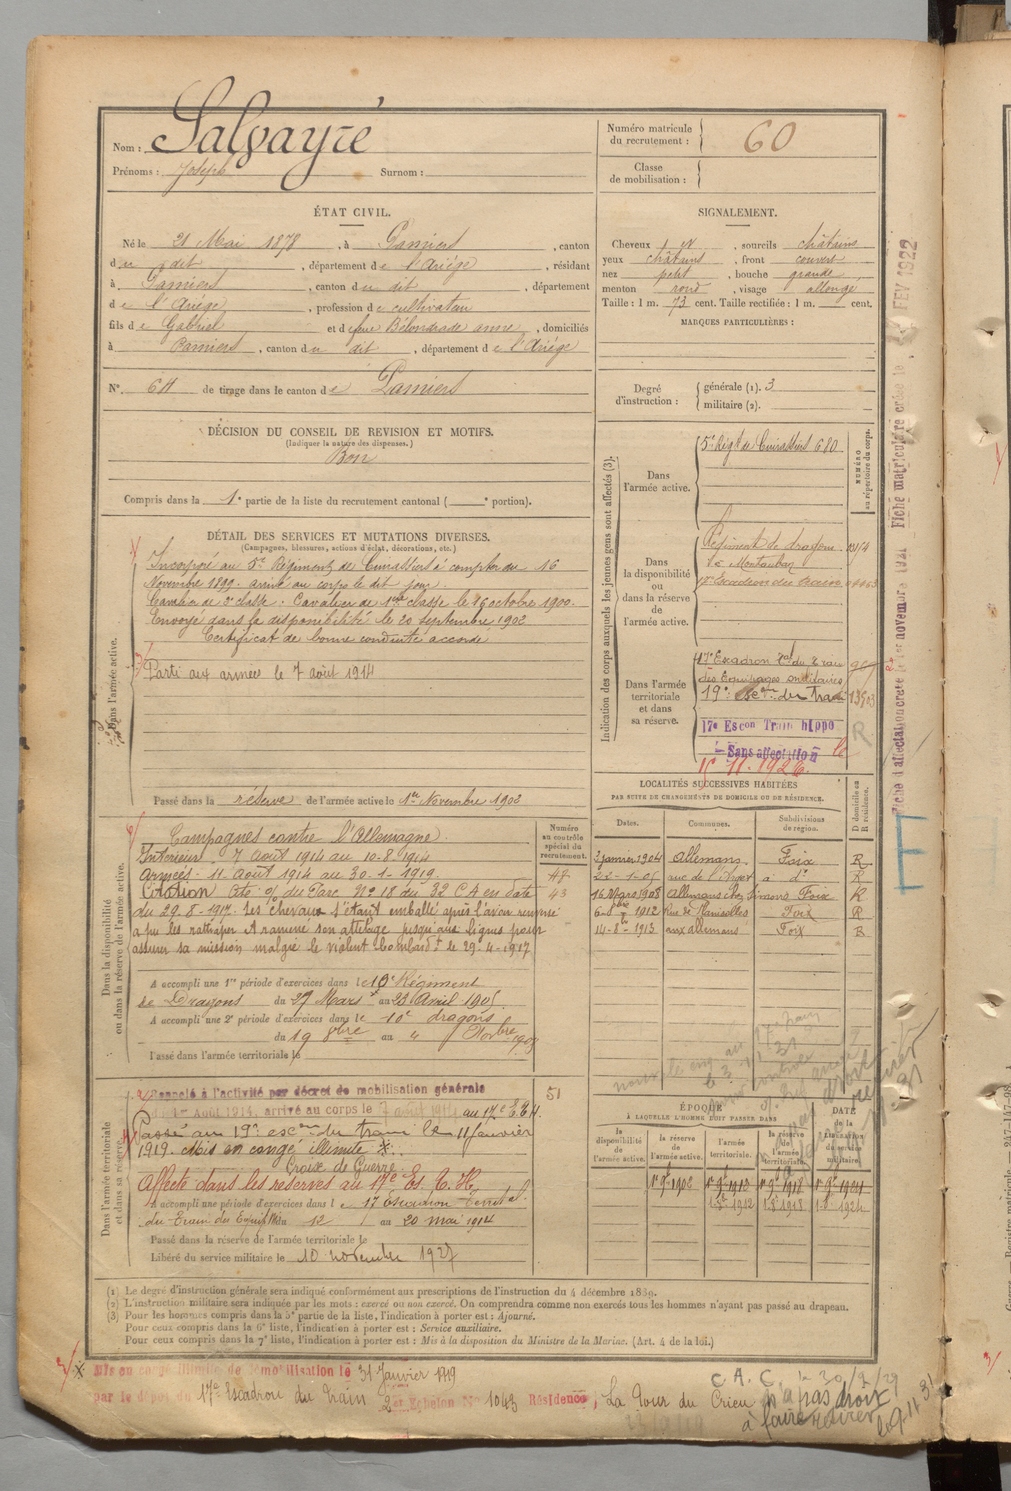 Nom : Salvayre
Prénoms : Joseph Surnom :
Numéro matricule du recrutement : 60
Classe de mobilisation :
ÉTAT CIVIL.
Né le 21 Mai 1878, à Pamiers, canton
du dit, département de l'Ariège, résidant
à Pamiers, canton du dit, département
de l'Ariège, profession de cultivateur
fils de Gabriel et de feue Bélondrade anne, domiciliés
à Pamiers, canton du dit, département de l'Ariège
N° 64 de tirage dans le canton de Pamiers
SIGNALEMENT.
Cheveux et, sourcils châtains
yeux châtains, front couvert
nez petit, bouche grande
menton rond, visage allongé
Taille : 1 m. 73 cent. Taille rectifiée : 1 m. cent.
MARQUES PARTICULIÈRES :
Degré d'instruction : générale (1). 3
militaire (2).
DÉCISION DU CONSEIL DE REVISION ET MOTIFS.
(Indiquer la nature des dispenses.)
Bon
Compris dans la 1e partie de la liste du recrutement cantonal ( e portion).
DÉTAIL DES SERVICES ET MUTATIONS DIVERSES.
(Campagnes, blessures, actions d'éclat, décorations, etc.)
Dans l'armée active.
Incorporé au 5e Régiment de Cuirassiers à compter du 16
Novembre 1899. arrivé au corps le dit jour.
Cavalier de 2e classe. Cavalier de 1ère classe le 26 octobre 1900.
Envoyé dans la disponibilité le 20 septembre 1902
Certificat de bonne conduite accordé
Parti aux armées le 7 août 1914
Passé dans la réserve de l'armée active le 1er Novembre 1902
Indication des corps auxquels les jeunes gens sont affectés (3).
NUMÉRO au répertoire du corps.
Dans l'armée active.
5e Régt de Cuirassiers 680
Dans la disponibilité ou dans la réserve de l'armée active.
Régiment de dragons
de Montauban
Escadron du train
Dans l'armée territoriale et dans sa réserve.
17e Escadron Ter du Train
des Equipages militaires
19e escon du train 13903
17e Escon Train hippo R
Sans affectation le
11.1926.
Dans la disponibilité ou dans la réserve de l'armée active.
Campagnes contre l'Allemagne
Intérieur 7 Août 1914 au 10-8-1914
Armées. 11 Août 1914 au 30.1.1919
Citation Ord. du Parc N° 18 du 32 CA en date
du 29.8.1917. Ses chevaux s'étant emballé après l'avoir renversé
a pu les rattraper et ramené son attelage jusqu'aux lignes pour
assurer sa mission malgré le violent bombardt le 29.4.1917
Numéro au contrôle spécial du recrutement.
48
43
A accompli une 1re période d'exercices dans le 10e Régiment
de Dragons du 27 Mars au 23 Avril 1905
A accompli une 2e période d'exercices dans le 10e dragons
du 19 8bre au 4 Novbre
Passé dans l'armée territoriale le
LOCALITÉS SUCCESSIVES HABITÉES
PAR SUITE DE CHANGEMENTS DE DOMICILE OU DE RÉSIDENCE.
Dates. Communes. Subdivisions de région. D domicile ou R résidence.
3 janvier 1904 Allemans Foix R
22-1-05 rue de l'Arget à do R
16 Mars 1908 Allemans chez Simons Foix R
6-8bre 1912 Rue de Foix R
14-8-1913 aux allemans Foix R
Dans l'armée territoriale et dans sa réserve.
Rappelé à l'activité par décret de mobilisation générale
du 1er Août 1914, arrivé au corps le 7 août 1914 au 17e E.T.H. 51
Passé au 19e escon du train le 11 janvier
1919. Mis en congé illimité *.
Croix de Guerre
Affecté dans les réserves au 17e Es. T. H.
A accompli une période d'exercices dans le 17 Escadron Territal
du Train des Equip. Mil. du 12 au 20 mai 1914
Passé dans la réserve de l'armée territoriale le
Libéré du service militaire le 10 novembre 1927
ÉPOQUE
À LAQUELLE L'HOMME DOIT PASSER DANS
la disponibilité de l'armée active. la réserve de l'armée active. l'armée territoriale. la réserve de l'armée territoriale.
DATE de la libération du service militaire.
1er 9bre 1902 1er 9bre 1912 1er 9bre 1918 1er 9bre 1924
(1) Le degré d'instruction générale sera indiqué conformément aux prescriptions de l'instruction du 4 décembre 1889.
(2) L'instruction militaire sera indiquée par les mots : exercé ou non exercé. On comprendra comme non exercés tous les hommes n'ayant pas passé au drapeau.
(3) Pour les hommes compris dans la 5e partie de la liste, l'indication à porter est : Ajourné.
Pour ceux compris dans la 6e liste, l'indication à porter est : Service auxiliaire.
Pour ceux compris dans la 7e liste, l'indication à porter est : Mis à la disposition du Ministre de la Marine. (Art. 4 de la loi.)
Mis en congé illimité de démobilisation le 31 Janvier 1919
par le dépôt du 17e Escadron du train 2er Echelon N° 1043 Résidence, La Tour du Crieu
C.A.C.
n'a pas droit
à faire retirer
Fiché d'affectation créée le 1er novembre 1931 Fiche matriculaire créée le FEV 1922